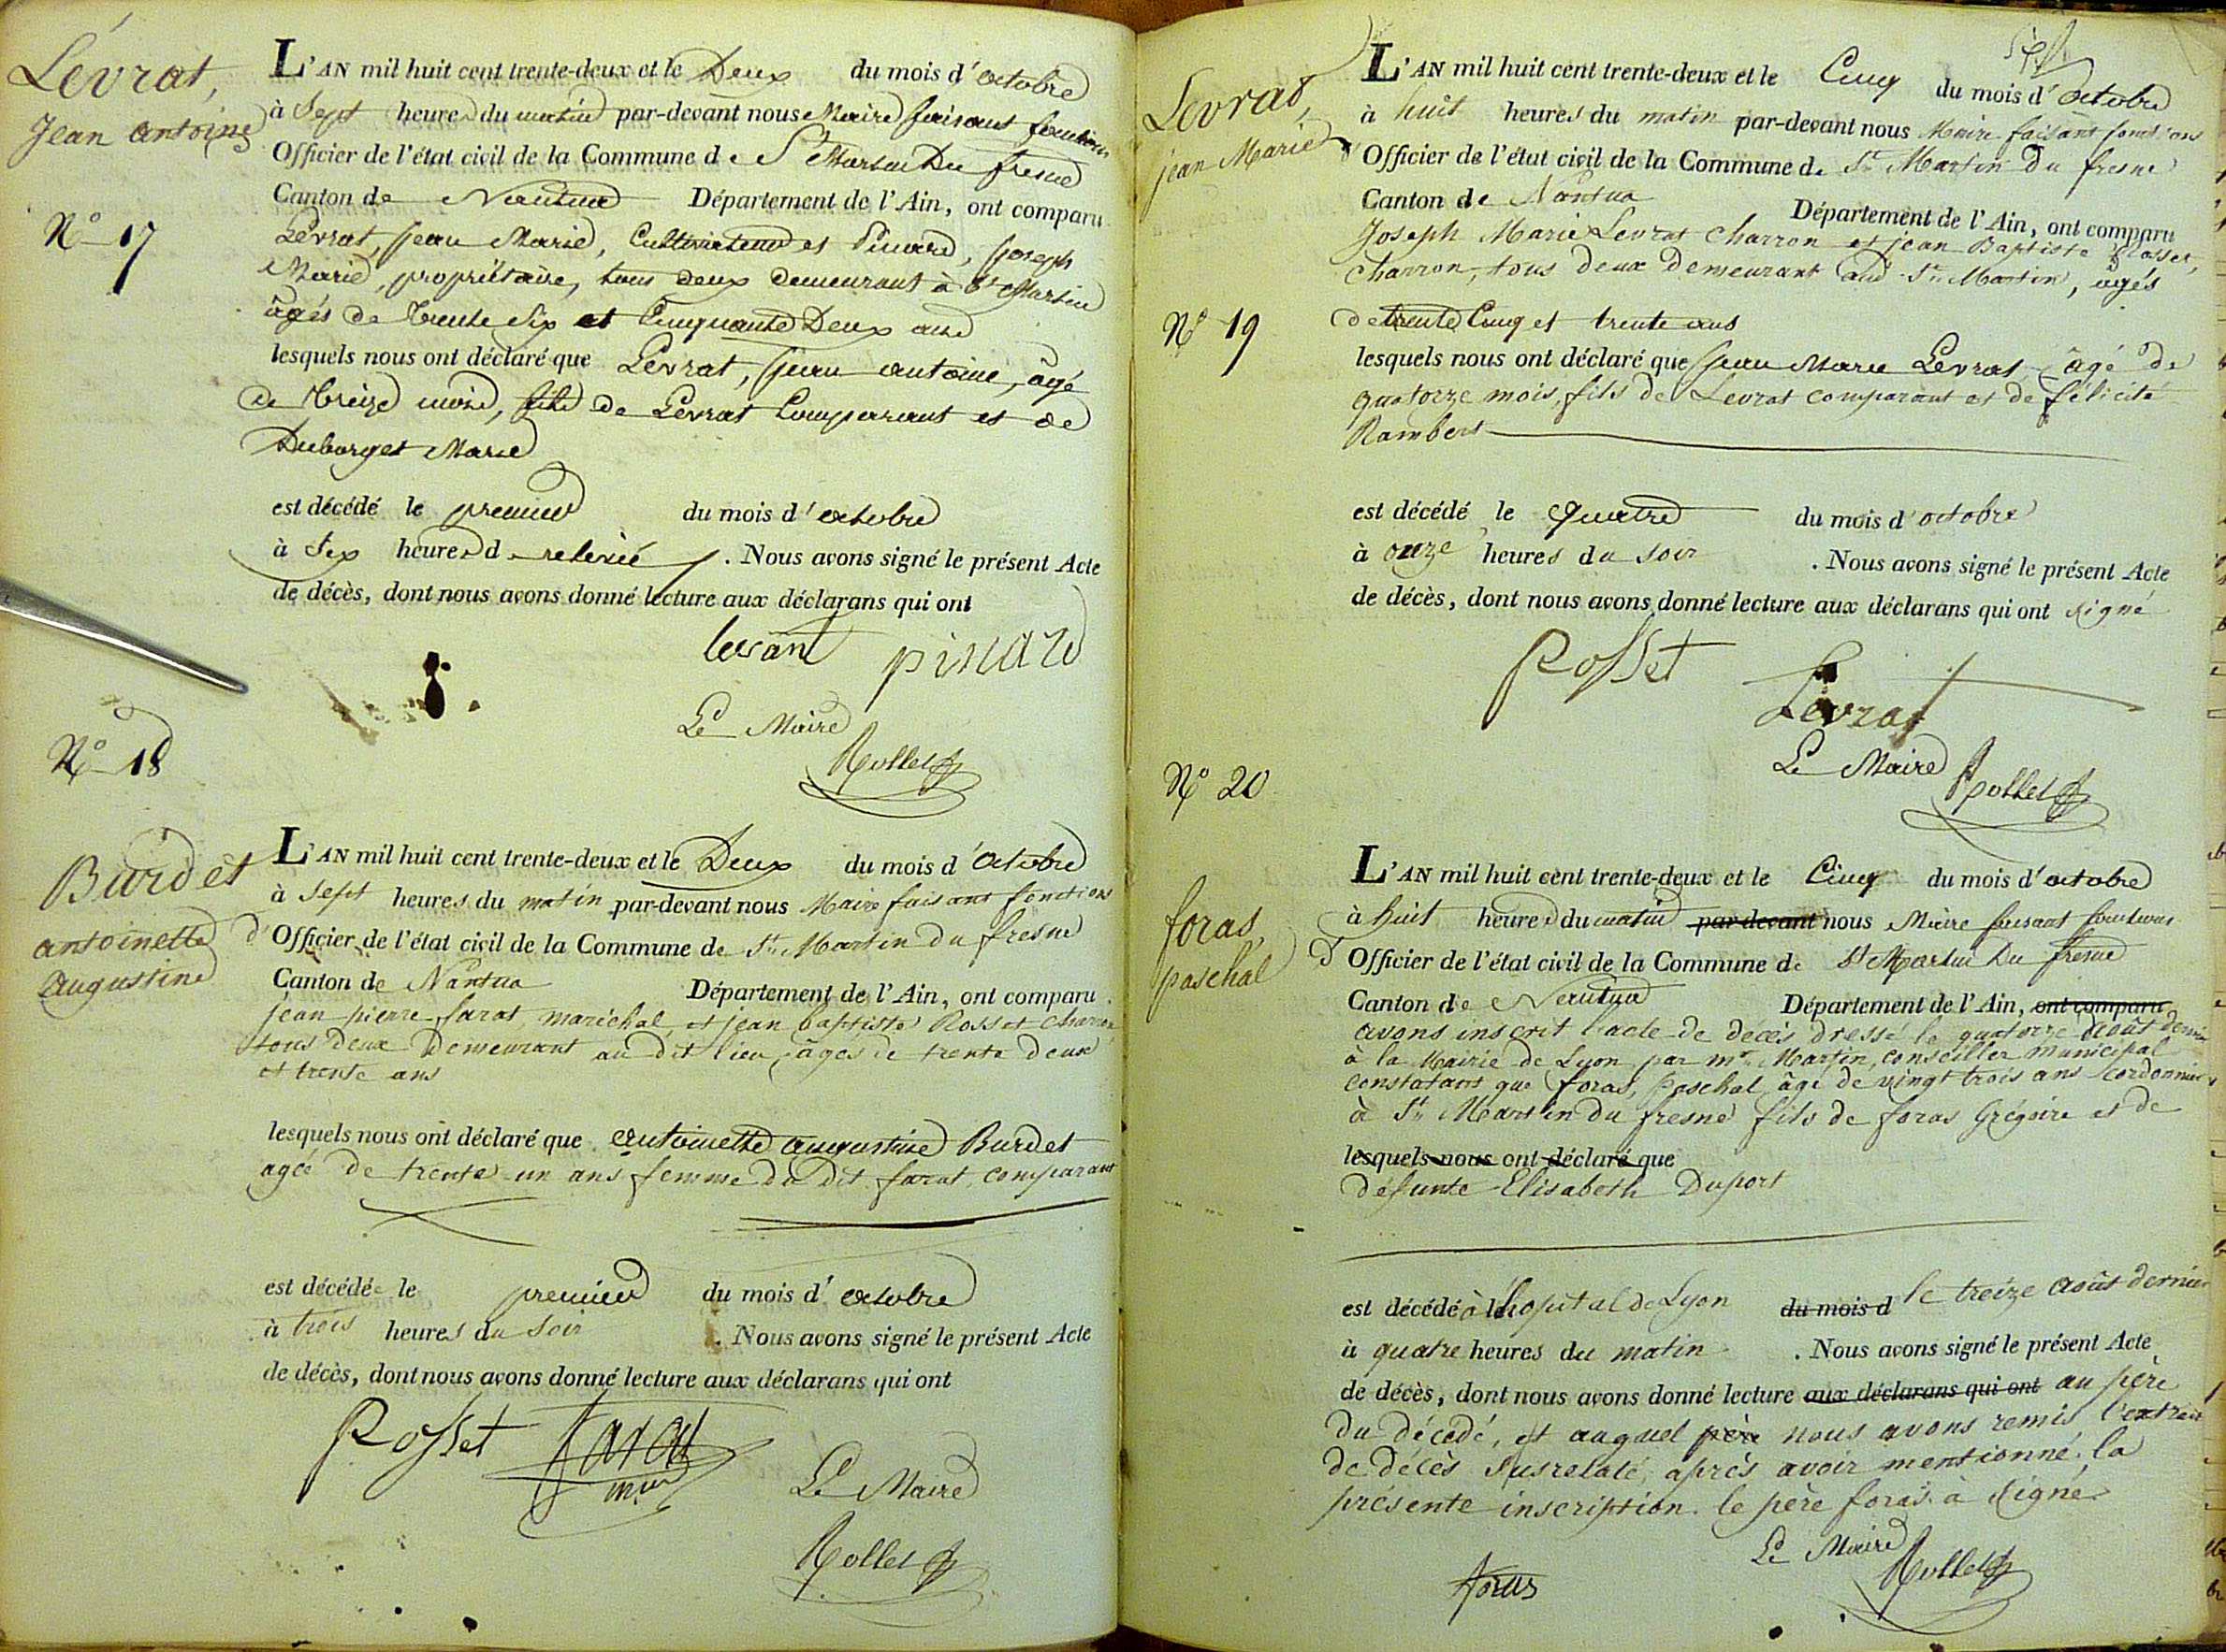 Lévrat,
Jean antoine
N° 17
L'AN mil huit cent trente-deux et le Deux du mois d'octobre
à Sept heures du matin par-devant nous Maire faisant fonctions
Officier de l'état civil de la Commune de St Martin Du fresne
Canton de Nantua Département de l'Ain, ont comparu
Levrat, jean Marie, Cultivateur et Pinard, joseph
Marie, propriétaire, tous deux demeurant à St Martin
âgés de trente Six et Cinquante Deux ans
lesquels nous ont déclaré que Levrat, jean antoine, âgé
de treize mois, fils de Levrat Comparant et de
Duborget Marie
est décédé le premier du mois d'octobre
à Six heures de relevée . Nous avons signé le présent Acte
de décès, dont nous avons donné lecture aux déclarans qui ont
pinard
Le Maire
Rollet
N° 18
Burdet
antoinette
augustine
L'AN mil huit cent trente-deux et le Deux du mois d'octobre
à sept heures du matin par-devant nous Maire faisant fonctions
d'Officier de l'état civil de la Commune de St. Martin du fresne
Canton de Nantua Département de l'Ain, ont comparu
jean pierre farat, maréchal, et jean baptiste Rosset charron
tous deux demeurant au dit lieu, âgés de trente deux
et trente ans
lesquels nous ont déclaré que antoinette augustine Burdet
agée de trente un ans femme du dit farat, comparant
est décédée le premier du mois d'octobre
à trois heures du soir . Nous avons signé le présent Acte
de décès, dont nous avons donné lecture aux déclarans qui ont
Rosset farat
Le Maire
Rollet
Levrat,
jean Marie
N° 19
L'AN mil huit cent trente-deux et le Cinq du mois d'octobre
à huit heures du matin par-devant nous Maire faisant fonctions
d'Officier de l'état civil de la Commune de St. Martin du fresne
Canton de Nantua Département de l'Ain, ont comparu
Joseph Marie Levrat charron et jean Baptiste Rosset,
charron, tous deux demeurant aud. St. Martin, âgés
de trente Cinq et trente ans
lesquels nous ont déclaré que jean Marie Levrat âgé de
quatorze mois, fils de Levrat comparant et de félicité
Rambert
est décédé le quatre du mois d'octobre
à onze heures du soir . Nous avons signé le présent Acte
de décès, dont nous avons donné lecture aux déclarans qui ont signé
Rosset
Levrat
Le Maire
Rollet
N° 20
foras,
paschal
L'AN mil huit cent trente-deux et le Cinq du mois d'octobre
à huit heures du matin par-devant nous Maire faisant fonctions
d'Officier de l'état civil de la Commune de St Martin Du fresne
Canton de Nantua Département de l'Ain, ont comparu
avons inscrit l'acte de décès dressé le quatorze août dernier
à la Mairie de Lyon par mr. Martin, conseiller municipal
constatant que foras, paschal âgé de vingt trois ans Cordonnier
à St. Martin du fresne fils de foras Grégoire et de
lesquels nous ont déclaré que
défunte Elisabeth Duport
est décédé à l'hopital de Lyon du mois d le treize août dernier
à quatre heures du matin . Nous avons signé le présent Acte
de décès, dont nous avons donné lecture aux déclarans qui ont au père
du décédé, et auquel père nous avons remis l'extrait
de décès susrelaté, aprés avoir mentionné la
présente inscription. le père foras à signé
Le Maire
Rollet
foras